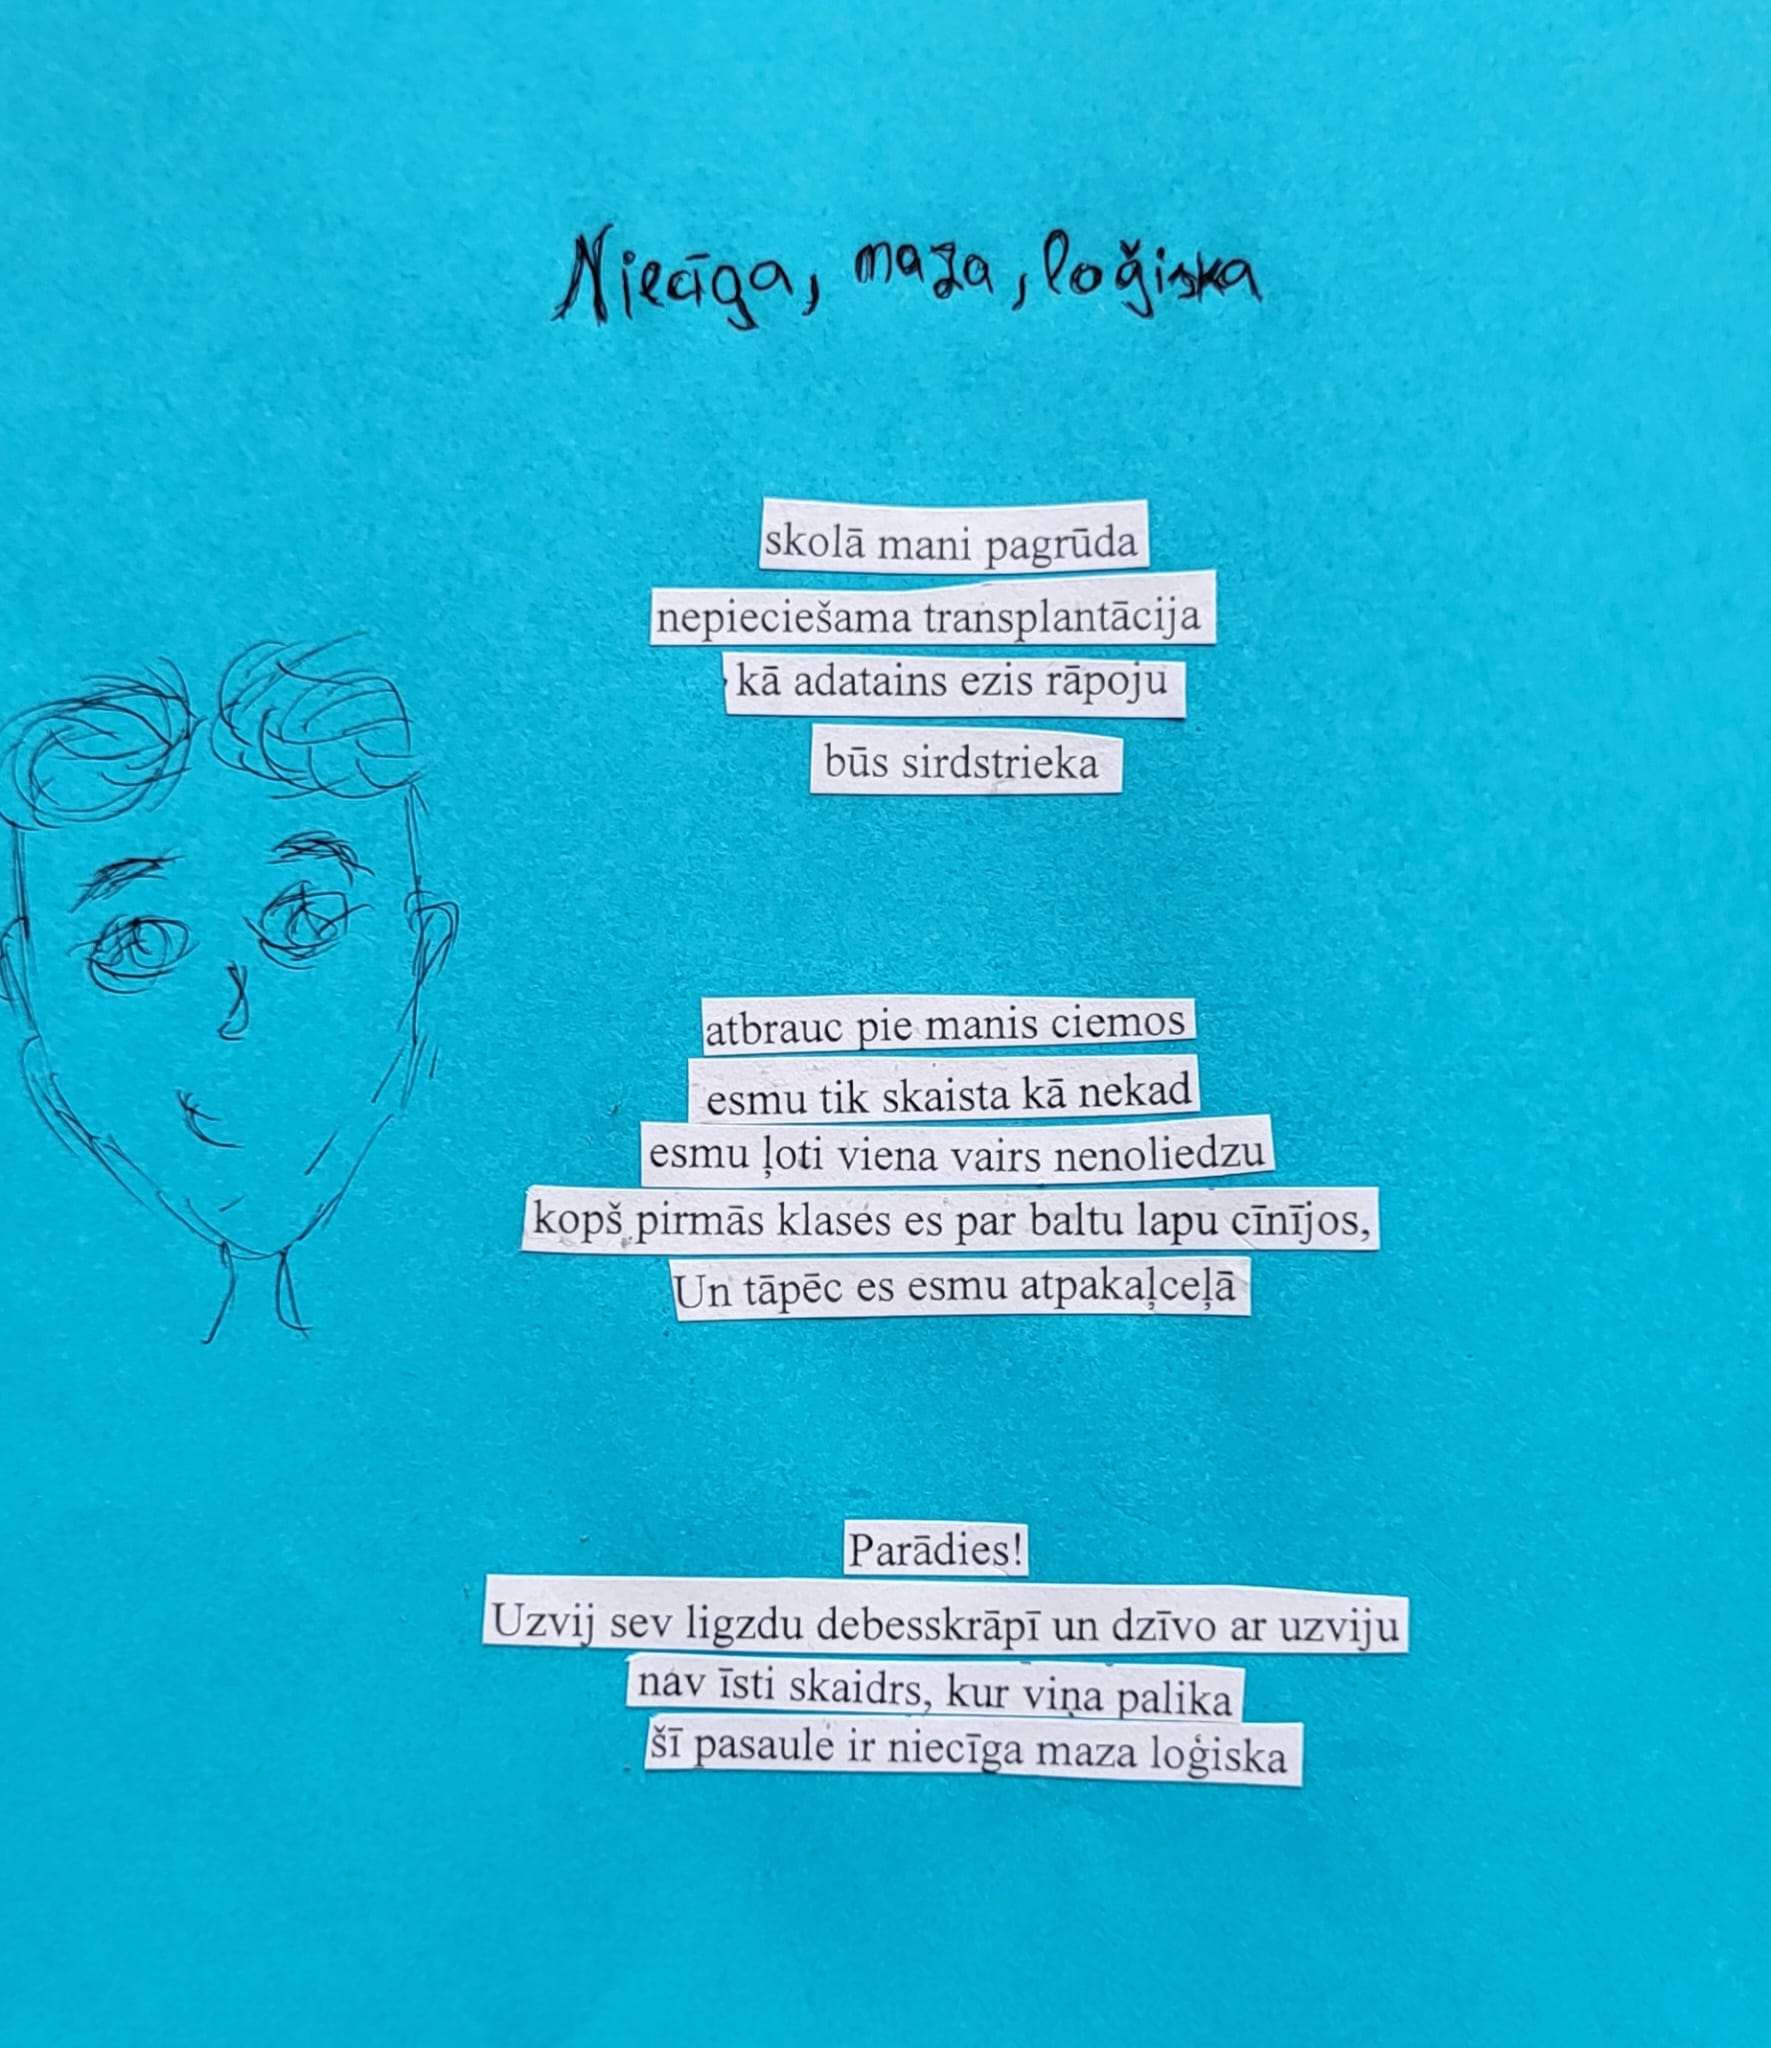 Niecīga, maza, loģiska
skolā mani pagrūda
nepieciešama transplantācija
kā adatains ezis rāpoju
būs sirdstrieka
atbrauc pie manis ciemos
esmu tik skaista kā nekad
esmu ļoti viena vairs nenoliedzu
kopš pirmās klases es par baltu lapu cīnījos,
Un tāpēc es esmu atpakaļceļā
Parādies!
Uzvij sev ligzdu debesskrāpī un dzīvo ar uzviju
nav īsti skaidrs, kur viņa palika
šī pasaule ir niecīga maza loģiska